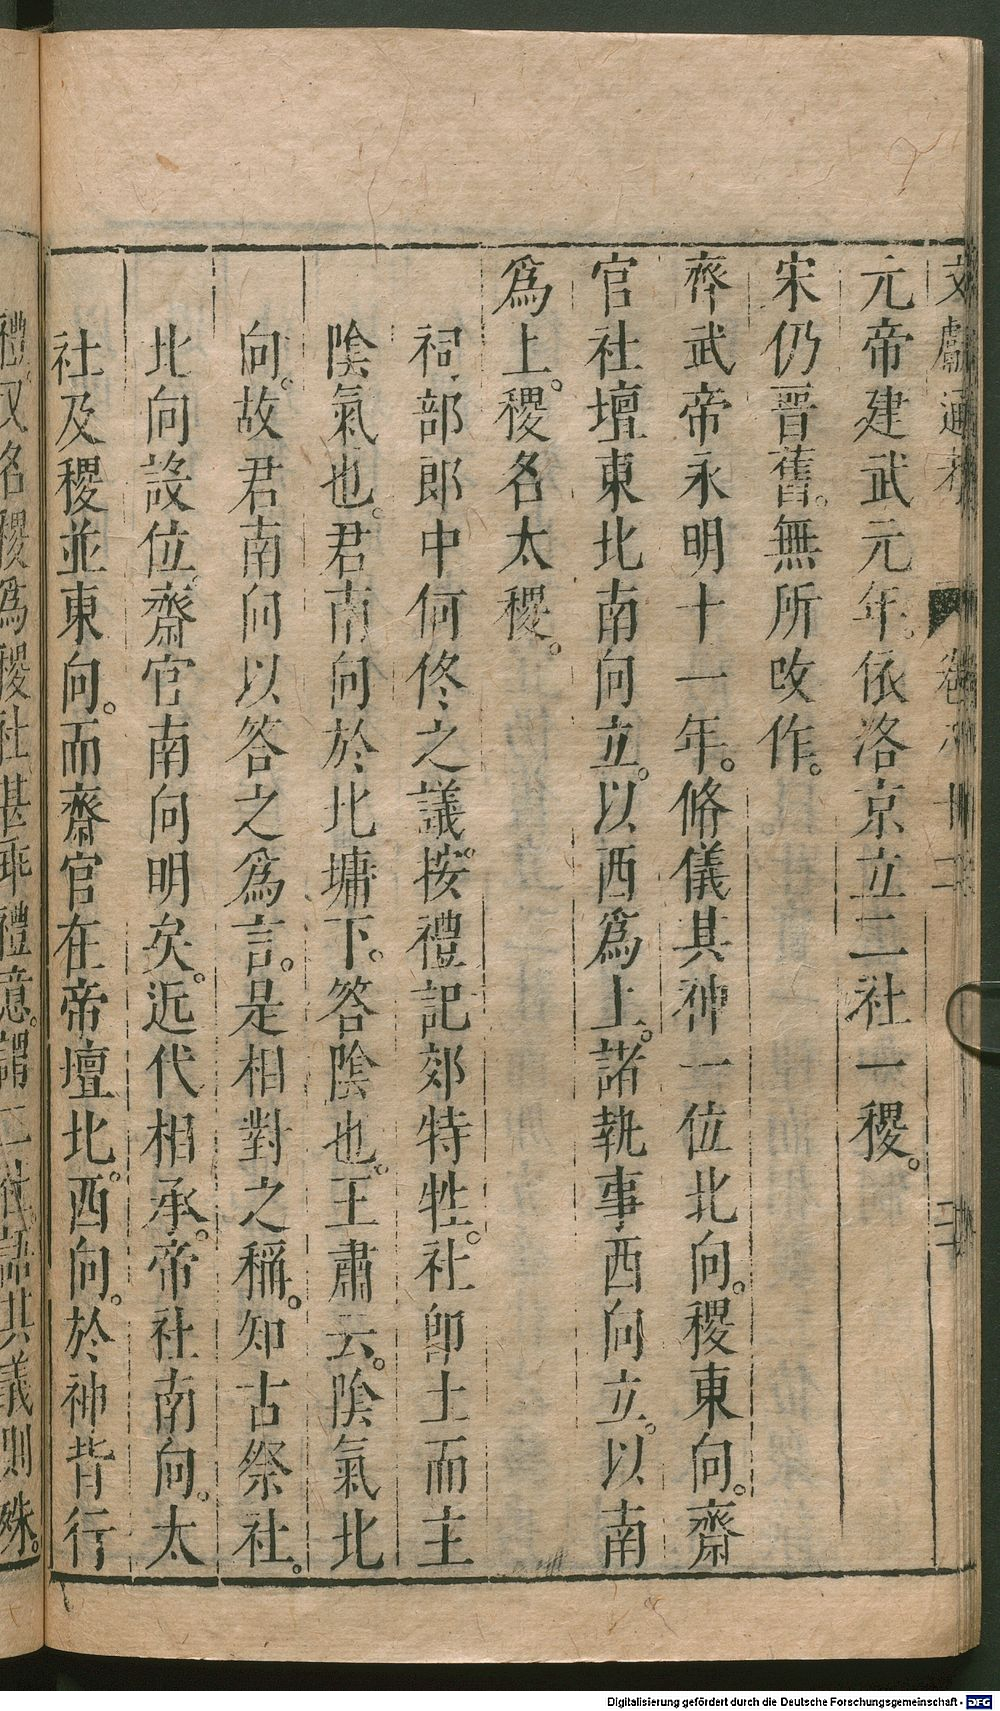 文獻通考 卷八十二
元帝建武元年。依洛京立二社一稷。
宋仍晋舊。無所改作。
齊武帝永明十一年。脩儀其神一位北向。稷東向。齋
官社壇東北南向立。以西爲上。諸執事西向立。以南
爲上。稷名太稷。
祠部郎中何佟之議。按禮記郊特牲。社卽土而主
陰氣也。君南向於北墉下。答陰也。王肅云。陰氣北
向。故君南向以答之爲言。是相對之稱。知古祭社。
北向設位。齋官南向明矣。近代相承。帝社南向。太
社及稷並東向。而齋官在帝壇北。西向。於神背行
禮。又名稷爲稷社甚乖禮意。謂二社語其議則殊。
Digitalisierung gefördert durch die Deutsche Forschungsgemeinschaft - DFG